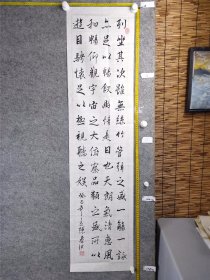 列坐其次雖無絲竹管弦之盛一觴一詠
亦足以暢敘幽情是日也天朗氣清惠風
和暢仰觀宇宙之大俯察品類之盛所以
遊目騁懷足以極視聽之娛